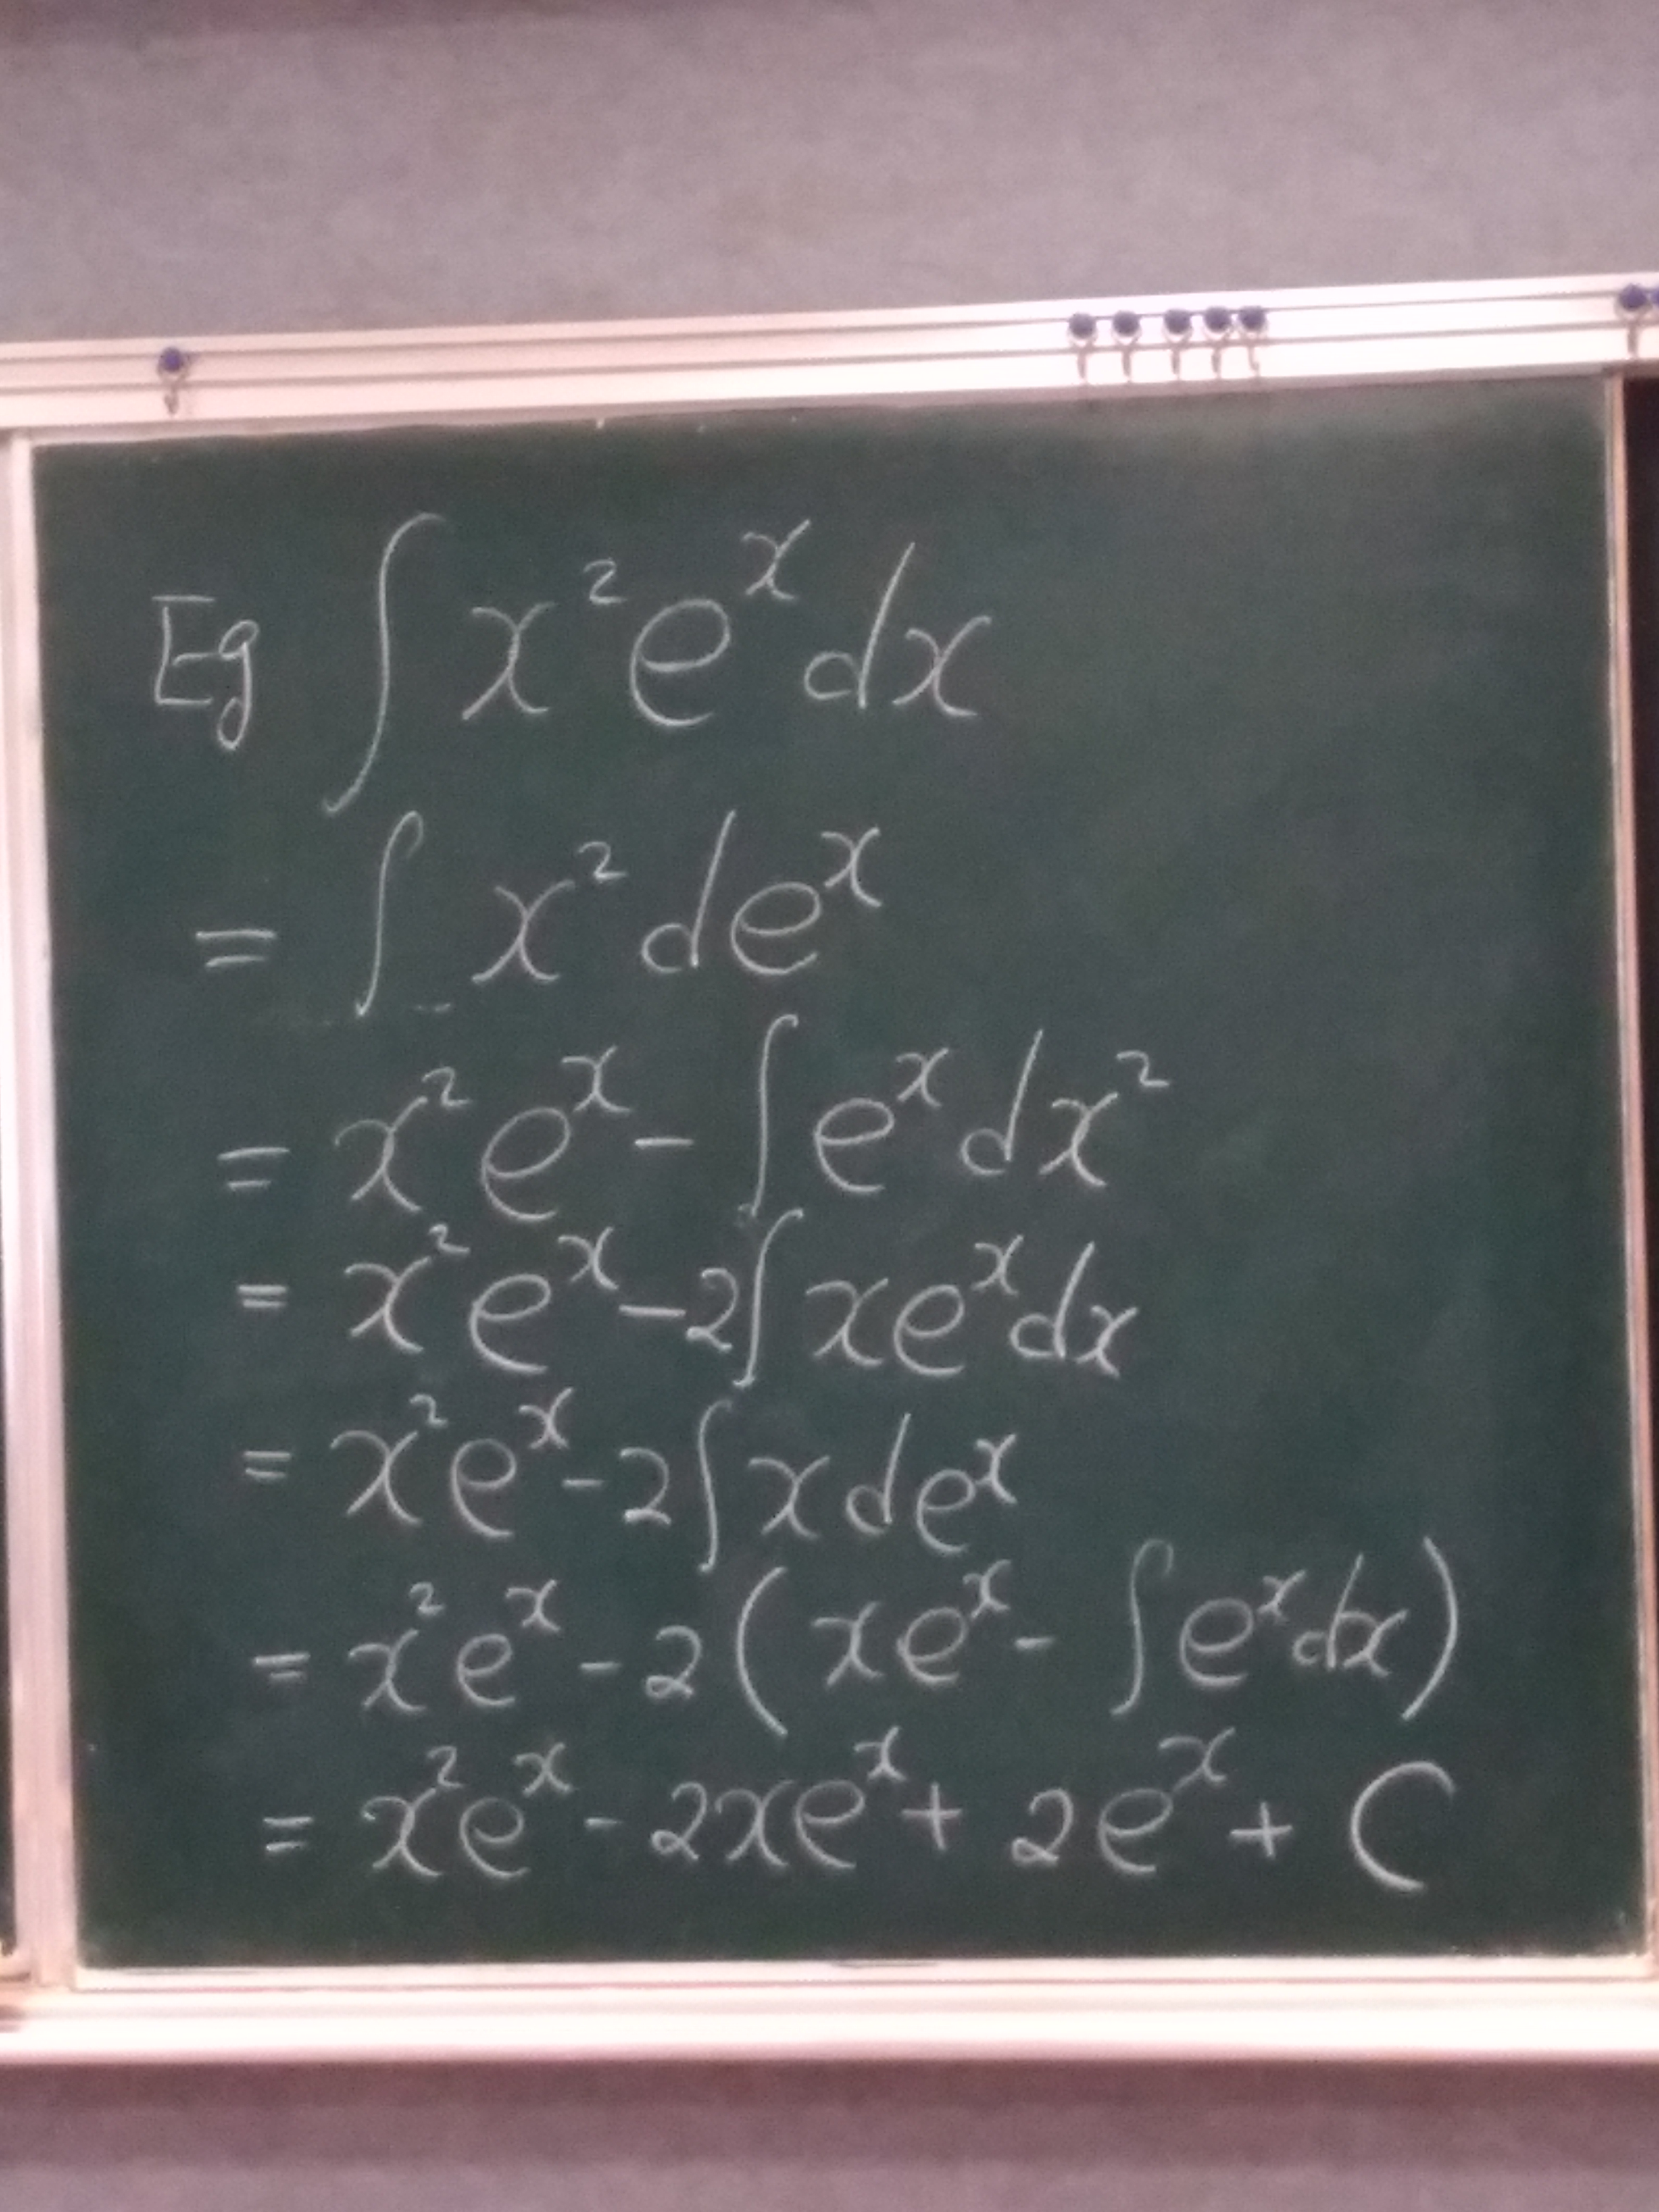 Eg ∫ x² eˣ dx
= ∫ x² deˣ
= x² eˣ - ∫ eˣ dx²
= x² eˣ - 2∫ x eˣ dx
= x² eˣ - 2∫ x deˣ
= x² eˣ - 2 ( x eˣ - ∫ eˣ dx )
= x² eˣ - 2x eˣ + 2 eˣ + C